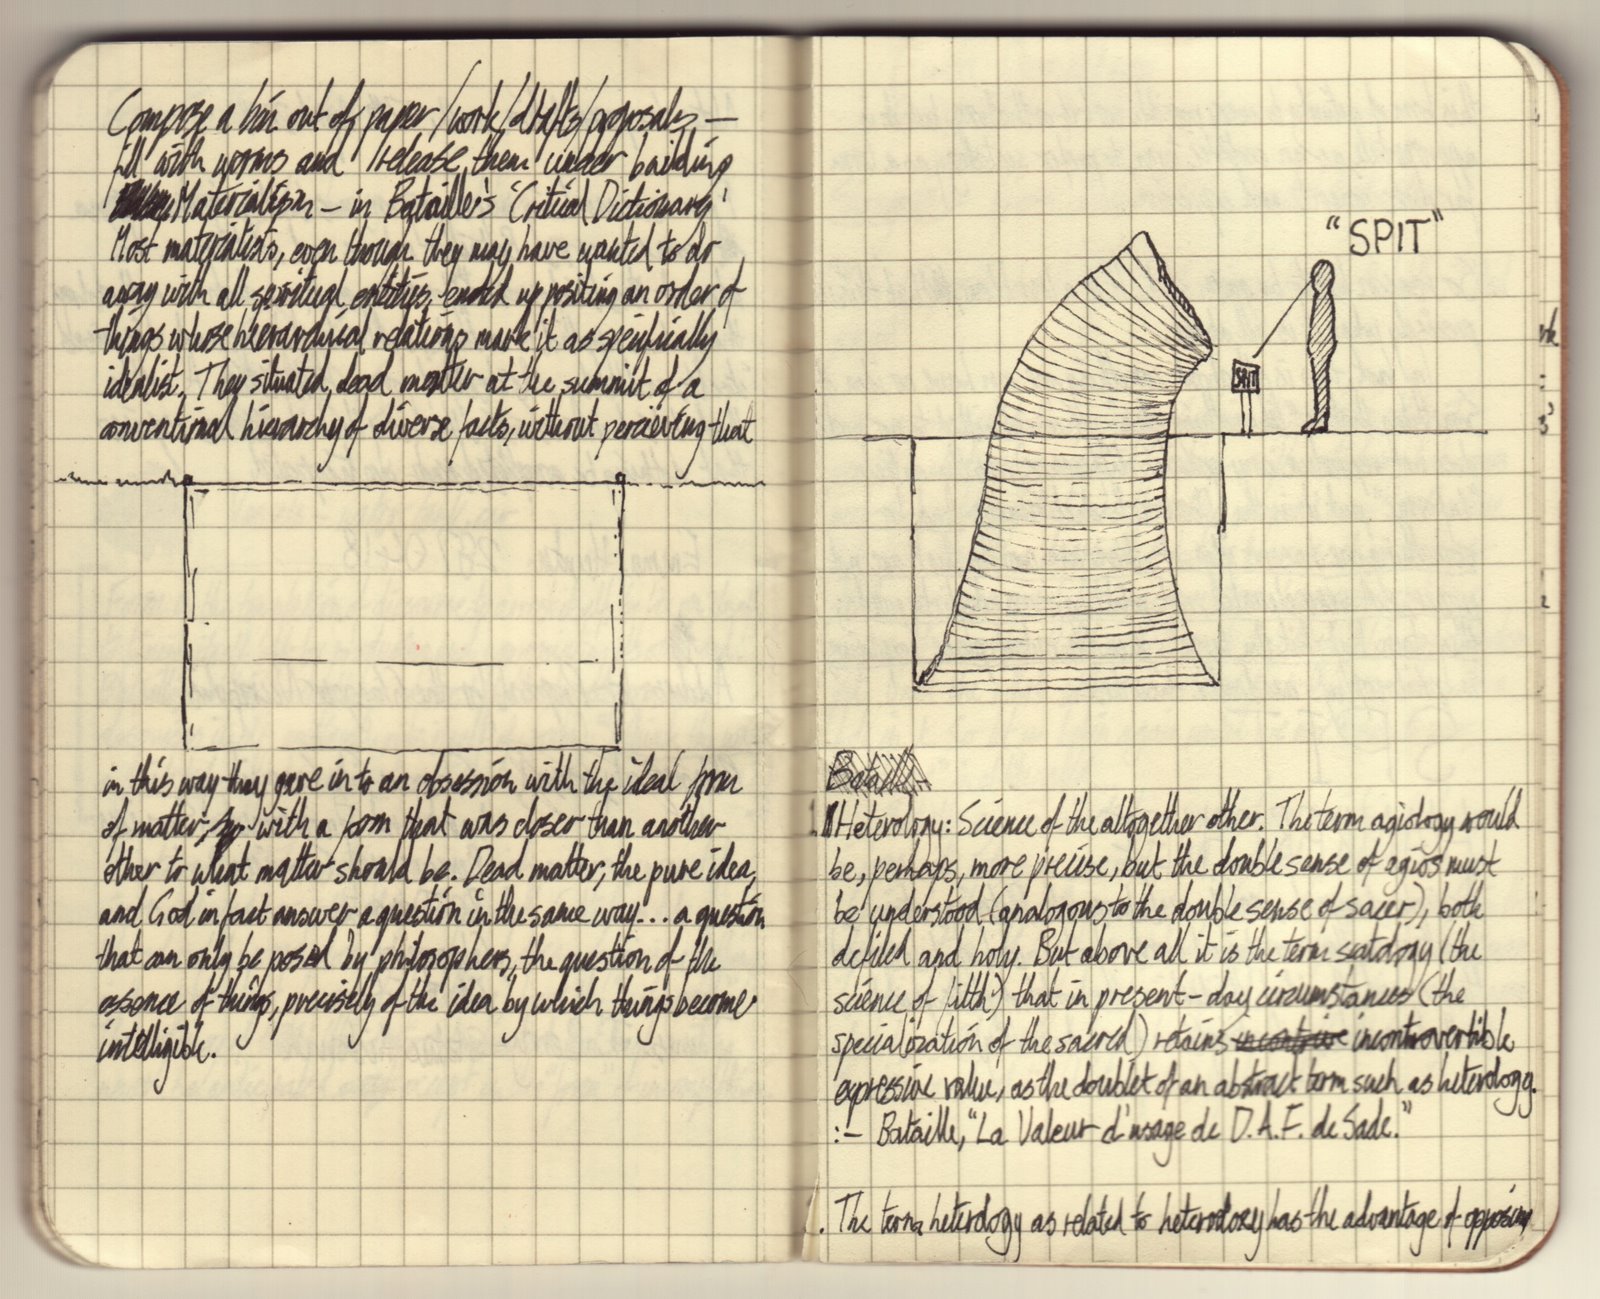 Compose a bin out of paper/work/drafts/proposals —
fill with worms and release them under building
Materialism — in Bataille's 'Critical Dictionary'
Most materialists, even though they may have wanted to do
away with all spiritual entities, ended up positing an order of
things whose hierarchical relations mark it as specifically
idealist. They situated dead matter at the summit of a
conventional hierarchy of diverse facts, without percieving that
in this way they gave in to an obsession with the ideal form
of matter, with a form that was closer than another
other to what matter should be. Dead matter, the pure idea,
and God in fact answer a question in the same way... a question
that can only be posed by philosophers, the question of the
essence of things, precisely of the idea by which things become
intelligible.
"SPIT"
SPIT
Bataille
Heterology: Science of the altogether other. The term agiology would
be, perhaps, more precise, but the double sense of agios must
be understood (analogous to the double sense of sacer), both
defiled and holy. But above all it is the term scatology (the
science of filth) that in present-day circumstances (the
specialization of the sacred) retains incontrovertible
expressive value, as the doublet of an abstract term such as heterology.
:— Bataille, "La Valeur d'usage de D.A.F. de Sade."
. The term heterology as related to heterodoxy has the advantage of opposing